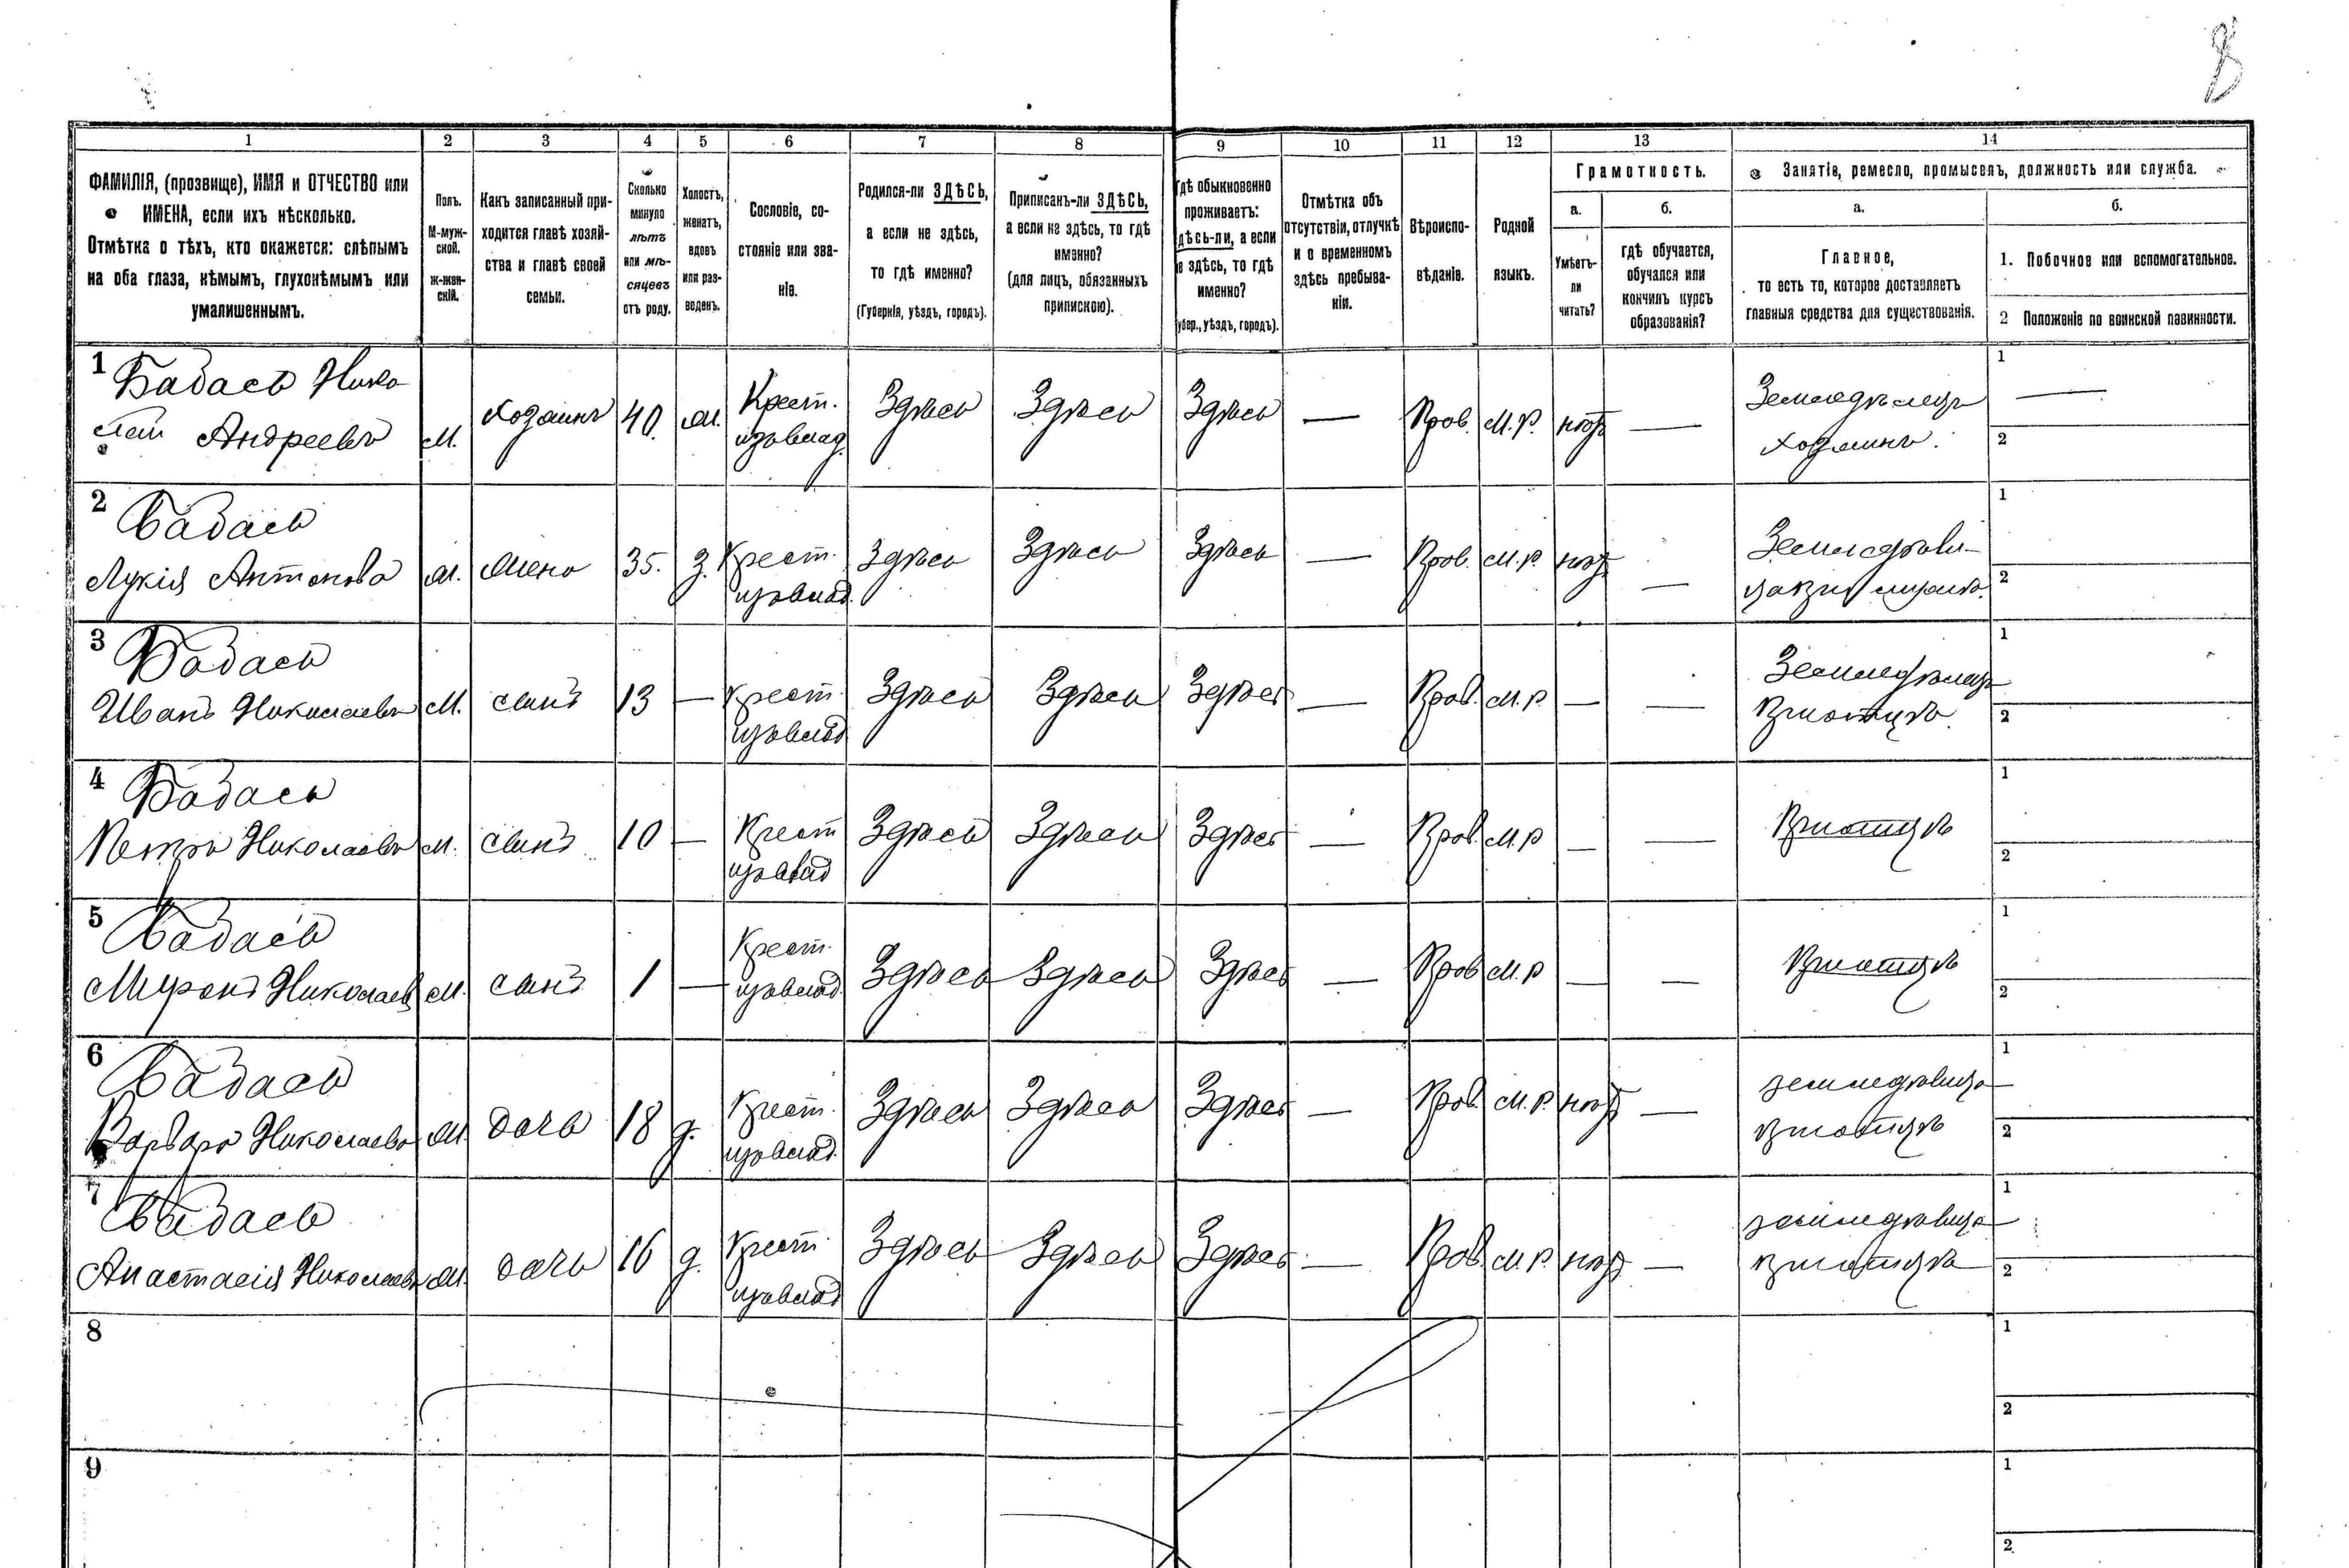 1 2 3 4 5 6 7 8 9 10 11 12 13 14
ФАМИЛІЯ, (прозвище), ИМЯ и ОТЧЕСТВО или
ИМЕНА, если ихъ нѣсколько.
Отмѣтка о тѣхъ, кто окажется: слѣпымъ
на оба глаза, нѣмымъ, глухонѣмымъ или
умалишеннымъ.
Полъ.
М-муж-
ской.
Ж-жен-
скій.
Какъ записанный при-
ходится главѣ хозяй-
ства и главѣ своей
семьи.
Сколько
минуло
лѣтъ
или мѣ-
сяцевъ
отъ роду.
Холостъ,
женатъ,
вдовъ
или раз-
веденъ.
Сословіе, со-
стояніе или зва-
ніе.
Родился-ли ЗДѢСЬ,
а если не здѣсь,
то гдѣ именно?
(Губернія, уѣздъ, городъ).
Приписанъ-ли ЗДѢСЬ,
а если не здѣсь, то гдѣ
именно?
(для лицъ, обязанныхъ
припискою).
Гдѣ обыкновенно
проживаетъ:
здѣсь-ли, а если
не здѣсь, то гдѣ
именно?
(Губер., уѣздъ, городъ).
Отмѣтка объ
отсутствіи, отлучкѣ
и о временномъ
здѣсь пребыва-
ніи.
Вѣроиспо-
вѣданіе.
Родной
языкъ.
Грамотность.
а.
Умѣетъ-
ли
читать?
б.
гдѣ обучается,
обучался или
кончилъ курсъ
образованія?
Занятіе, ремесло, промыселъ, должность или служба.
а.
Главное,
то есть то, которое доставляетъ
главныя средства для существованія.
б.
1. Побочное или вспомогательное.
2 Положеніе по воинской повинности.
1 Бадась Нико
лай Андреевъ
М. Хозяинъ 40. Крест.
изъ влад. Здѣсь Здѣсь Здѣсь — Прав. М.Р. нѣтъ — Земледѣлецъ
хозяинъ. 1 —
2
2 Бадась
Лукія Антонова
Жена 35. З. Крест.
изъ влад. Здѣсь Здѣсь Здѣсь — Прав. М.Р. нѣтъ — 1
2
3 Бадась
Иванъ Николаевъ
М. сынъ 13 — Крест.
изъ влад. Здѣсь Здѣсь Здѣсь — Прав. М.Р — — Земледѣлецъ
При отцѣ. 1
2
4 Бадась
Петръ Николаевъ
М. сынъ 10 — Крест
изъ влад Здѣсь Здѣсь Здѣсь — Прав. М.Р — — При отцѣ 1
2
5 Бадась
Миронъ Николаевъ
М. сынъ 1 — Крест.
изъ влад. Здѣсь Здѣсь Здѣсь — Прав М.Р — — При отцѣ 1
2
6 Бадась
Варвара Николаева
дочь 18 д. Крест.
изъ влад. Здѣсь Здѣсь Здѣсь — Прав. М.Р. нѣтъ —
при отцѣ 1
2
7 Бадась
Анастасія Николаева
дочь 16 д. Крест.
изъ влад Здѣсь Здѣсь Здѣсь — Прав. М.Р. нѣтъ —
при отцѣ 1
2
8 1
2
9 1
2